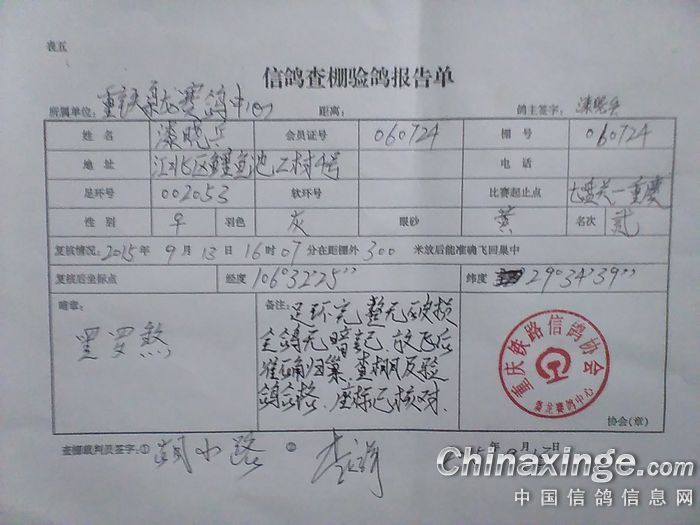 表五
信鸽查棚验鸽报告单
所属单位: 重庆枭龙赛鸽中心 距离: 鸽主签字: 漆晓兵
姓名 漆晓兵 会员证号 060724 棚号 060724
地址 江北区鲤鱼池二村4号 电话
足环号 002053 软环号 比赛起止点 七盘关—重庆
性别 ♀ 羽色 灰 眼砂 黄 名次 贰
复核情况: 2015年 9月 13日 16时07分在距棚外 300 米放后能准确飞回巢中
复核后坐标点 经度 106°32'25" 纬度 29°34'39"
暗章:
备注: 足环完整无破损
全鸽无暗记,放飞后
准确归巢,查棚及验
鸽合格.座标已核对.
重庆铁路信鸽协会
枭龙赛鸽中心
协会(章)
查棚裁判员签字:① 胡小路 ②
年 月 日
Chinaxinge.com
中国信鸽信息网